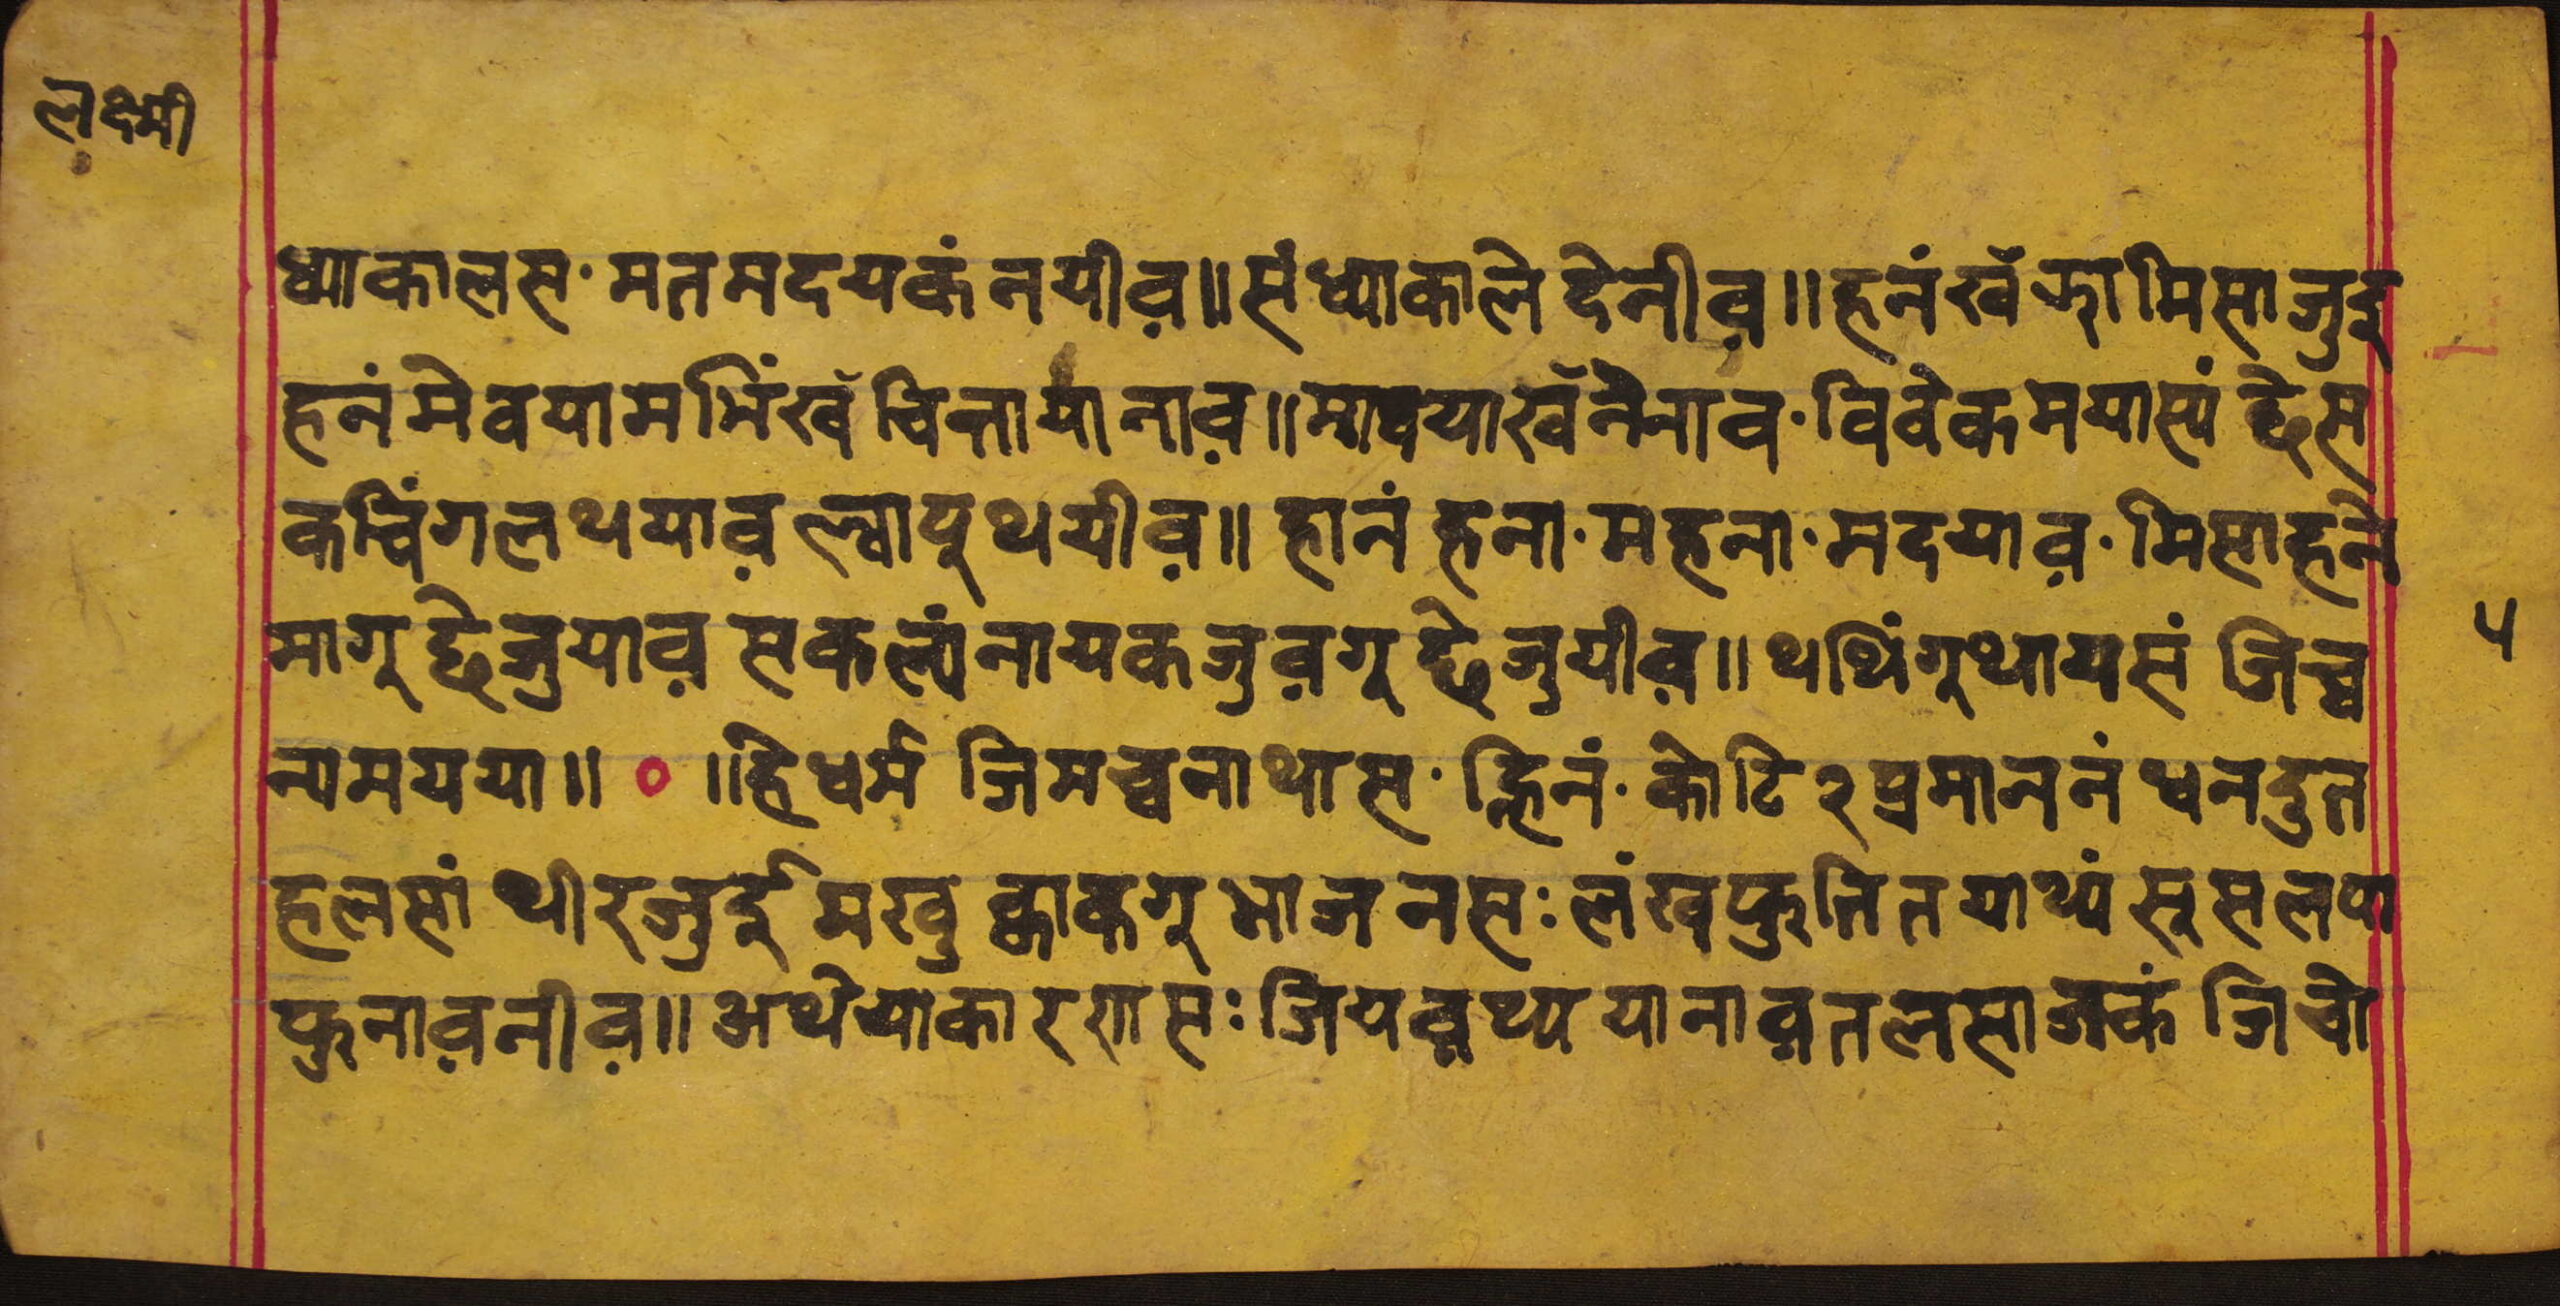 लक्ष्मी
ध्याकालस · मतमदयकं नयीव़॥ संध्याकाले देनीव़॥ हनं खँ ऋामिसाजुइ
हनं मेवयाममिंखँ चित्तायानाव़॥ म्यावयाखँनेनाव · विवेकमयास्यं छेस
कचिंगलथयाव़ ल्वापूथयीव़॥ हानं हना · महना · मदयाव़ · मिसाहने
मागू छेजुयाव़ सकल्यं नायकजुव़गू छेजुयीव़॥ थथिंगूथायसं जिच्व
न्यमयया॥ ० ॥हेधर्म जिमच्वनाथास · ह्निनं · कोटि२प्रमाननं धनदुत
हलसां थीरजुईमखु ह्वाकगू भाजनसः लंखफुतितयाथ्यं सूसलपा
फुनाव़नीव़॥ अथेयाकारणसः जियव़थ्य यानाव़तलसाजकं जिचो
५